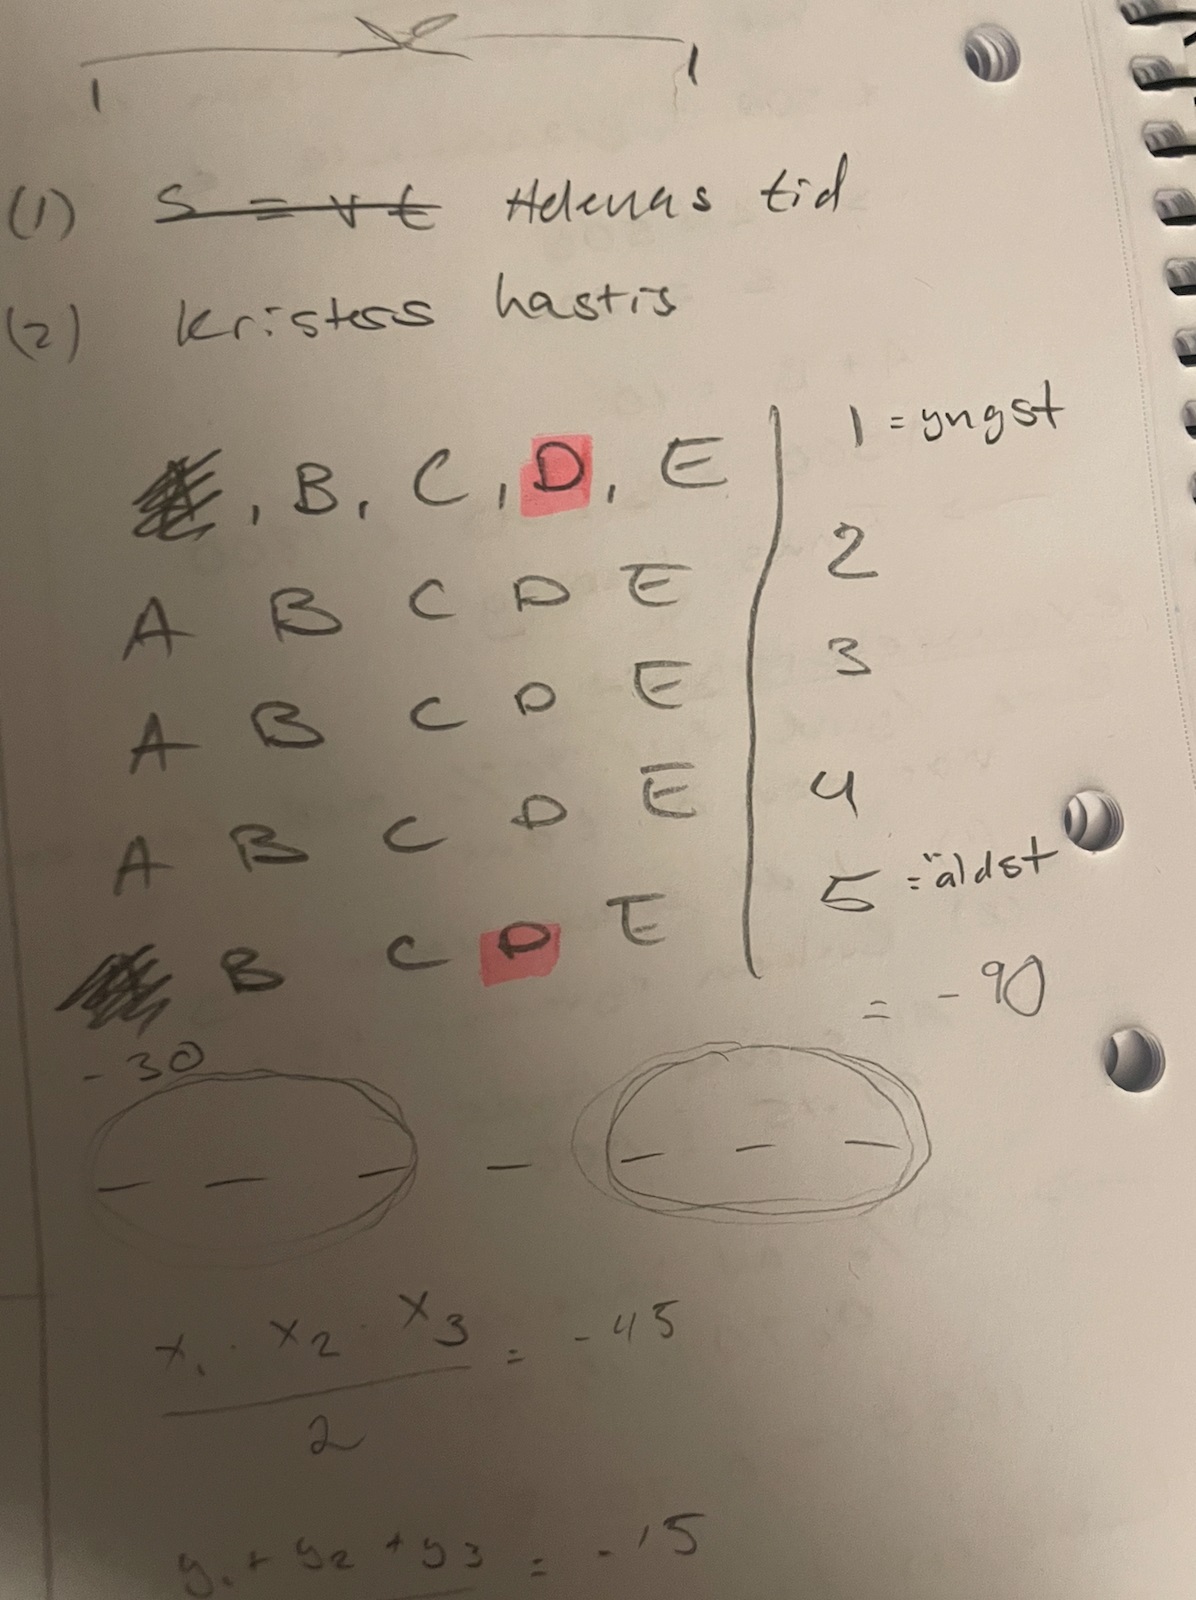 (1) s = vt Helenas tid
(2) hastis
, B, C, D, E 1 = yngst
A B C D E 2
A B C D E 3
A B C D E 4
B C D E 5 = äldst
= -90
-30
_ _ _ - _ _ _
x₁ · x₂ · x₃ = -45
2
y₁ + y₂ + y₃ = -15